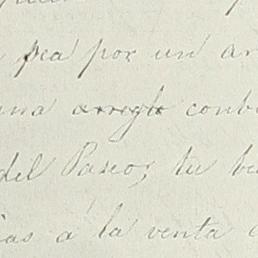 sea por un ar
una arreglo conv
del Paseo; tu
ias a la venta